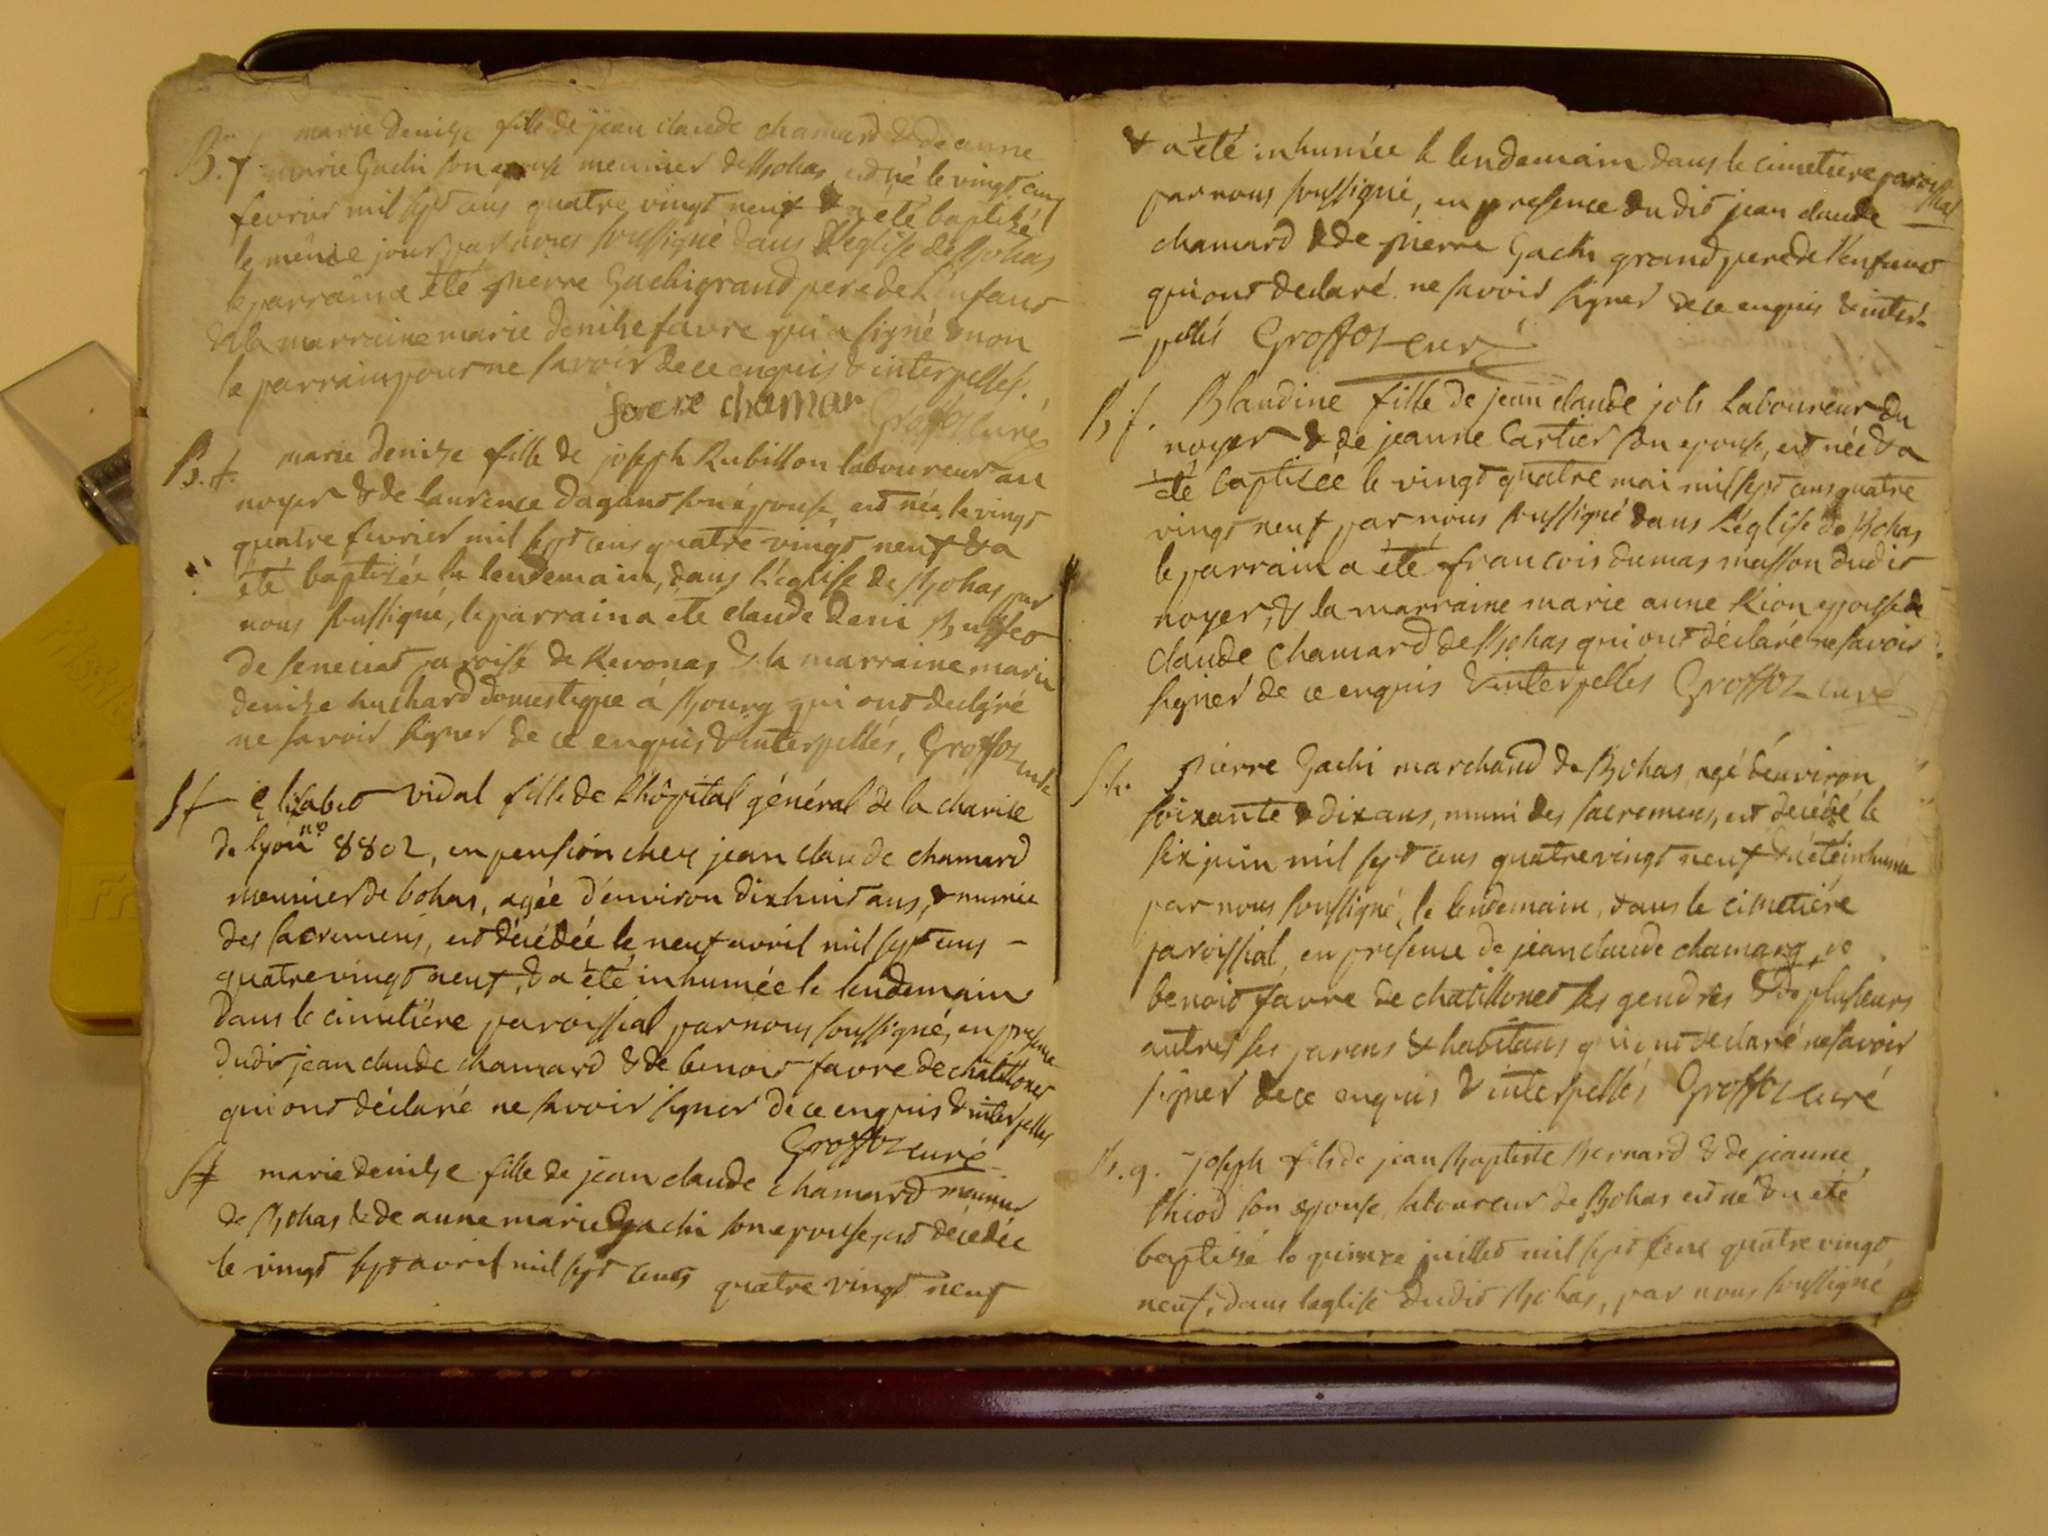 B. f. marie denise fille de jean claude chamard & de anne
marie Gachi son epouse meunier de Bohas, est né le vingt cinq
fevrier mil sept cens quatre vingt neuf & a été baptisée
le même jour par nous soussigné dans l'eglise de Bohas
le parrain a été pierre Gachi grand pere de l'enfant
& la marraine marie denise favre qui a signé & non
le parrain pour ne savoir de ce enquis & interpellés.
favre chamar Groffoz curé
B. f. marie denise fille de joseph Rubillon laboureur au
noyer & de laurence dagant son épouse, est née le vingt
quatre fevrier mil sept cens quatre vingt neuf & a
été baptisée le lendemain, dans l'église de Bohas par
nous soussigné, le parrain a ete claude deni Buffet
de seneciat paroisse de Revonas & la marraine marie
denise huchard domestique à Bourg qui ont declaré
ne savoir signer de ce enquis & interpellés, Groffoz curé
Sf elisabet vidal fille de l'hôpital général de la charité
de lyon n° 8802, en pension chez jean claude chamard
meunier de bohas, agée d'environ dixhuit ans, & munie
des sacremens, est décédée le neuf avril mil sept cens
quatre vingt neuf, & a été inhumée le lendemain
dans le cimetière paroissial par nous soussigné, en presence
dudit jean claude chamard & de benoit favre de chatillonet
qui ont déclaré ne savoir signer de ce enquis & interpellés
Groffoz curé
Sf marie denise fille de jean claude chamard meunier
de Bohas & de anne marie Gachi son epouse, est décédée
le vingt sept avril mil sept cens quatre vingt neuf
& a été inhumée le lendemain dans le cimetiere paroissial
par nous soussigné, en presence du dit jean claude
chamard & de pierre Gachi grand pere de l'enfant
qui ont declaré ne savoir signer de ce enquis & inter-
-pellés Groffoz curé
B. f. Blandine fille de jean claude joli laboureur du
noyer & de jeanne Cartier son epouse, est née & a
été baptisée le vingt quatre mai mil sept cens quatre
vingt neuf par nous soussigné dans l'église de Bohas
le parrain a été francois dumas masson dudit
noyer, & la marraine marie anne Rion epouse de
claude chamard de Bohas qui ont déclaré ne savoir
signer de ce enquis & interpellés Groffoz curé
S. h. pierre Gachi marchand de Bohas, agé d'environ
soixante & dix ans, muni des sacremens, est décédé le
six juin mil sept cens quatre vingt neuf & a été inhumé
par nous soussigné, le lendemain, dans le cimetiére
paroissial, en presence de jean claude chamard, de
benoit favre de chatillonet ses gendres & de plusieurs
autres ses parens & habitans qui ont declaré ne savoir
signer de ce enquis & interpellés Groffoz curé
B. g. joseph fils de jean Baptiste Bernard & de jeanne
Thiod son epouse laboureur de Bohas est né & a été
baptisé le quinze juillet mil sept cens quatre vingt
neuf, dans l'eglise dudit Bohas, par nous soussigné